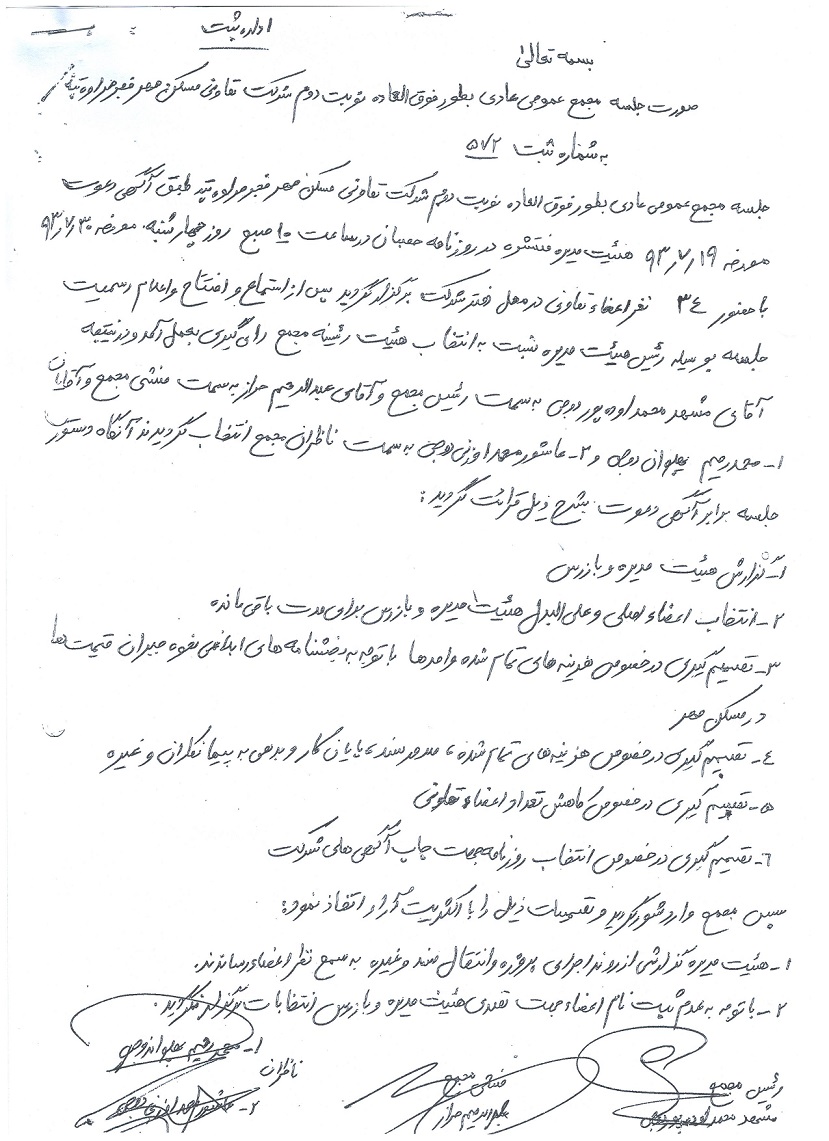 اداره ثبت
بسمه تعالی
صورت جلسه مجمع عمومی عادی بطور فوق العاده نوبت دوم شرکت تعاونی مسکن مهر فجر مراوه تپه
به شماره ثبت ۵۷۲
جلسه مجمع عمومی عادی بطور فوق العاده نوبت دوم شرکت تعاونی مسکن مهر فجر مراوه تپه طبق آگهی دعوت
مورخه ۹۳٫۷٫۱۹ هیئت مدیره منتشره در روزنامه در ساعت ۱۰ صبح روز چهارشنبه مورخه ۹۳٫۷٫۳۰
با حضور ۳۴ نفر اعضاء تعاونی در محل دفتر شرکت برگزار گردید پس از استماع و افتتاح و اعلام رسمیت
جلسه بوسیله رئیس هیئت مدیره نسبت به انتخاب هیئت رئیسه مجمع رای گیری بعمل آمد و در نتیجه
آقای مشهد محمد اوده پور دوجی به سمت رئیس مجمع و آقای عبدالرحیم حراز به سمت منشی مجمع و آقایان
۱- محمد رحیم پهلوان دوجی و ۲- عاشور محمد دوجی به سمت ناظران مجمع انتخاب گردیدند آنگاه دستور
جلسه برابر آگهی دعوت بشرح ذیل قرائت گردید:
۱- گزارش هیئت مدیره و بازرس
۲- انتخاب اعضاء اصلی و علی البدل هیئت مدیره و بازرس برای مدت باقی مانده
۳- تصمیم گیری درخصوص هزینه های تمام شده واحدها با توجه به بخشنامه های ابلاغی نحوه جبران قیمت ها
در مسکن مهر
۴- تصمیم گیری درخصوص هزینه های تمام شده، صدور سند، پایان کار و بدهی به پیمانکاران و غیره
۵- تصمیم گیری درخصوص کاهش تعداد اعضاء تعاونی
۶- تصمیم گیری درخصوص انتخاب روزنامه جهت چاپ آگهی های شرکت
سپس مجمع وارد شور گردید و تصمیمات ذیل را با اکثریت آراء اتخاذ نمود:
۱- هیئت مدیره گزارشی از روند اجرای پروژه وانتقال سند وغیره به سمع نظر اعضاء رساندند.
۲- با توجه به عدم ثبت نام اعضاء جهت تصدی هیئت مدیره و بازرس انتخابات برگزار نگردید.
رئیس مجمع
مشهد محمد اوده پور دوجی
منشی مجمع
عبدالرحیم حراز
ناظران
۱- محمد رحیم پهلوان دوجی
۲- عاشور محمد دوجی